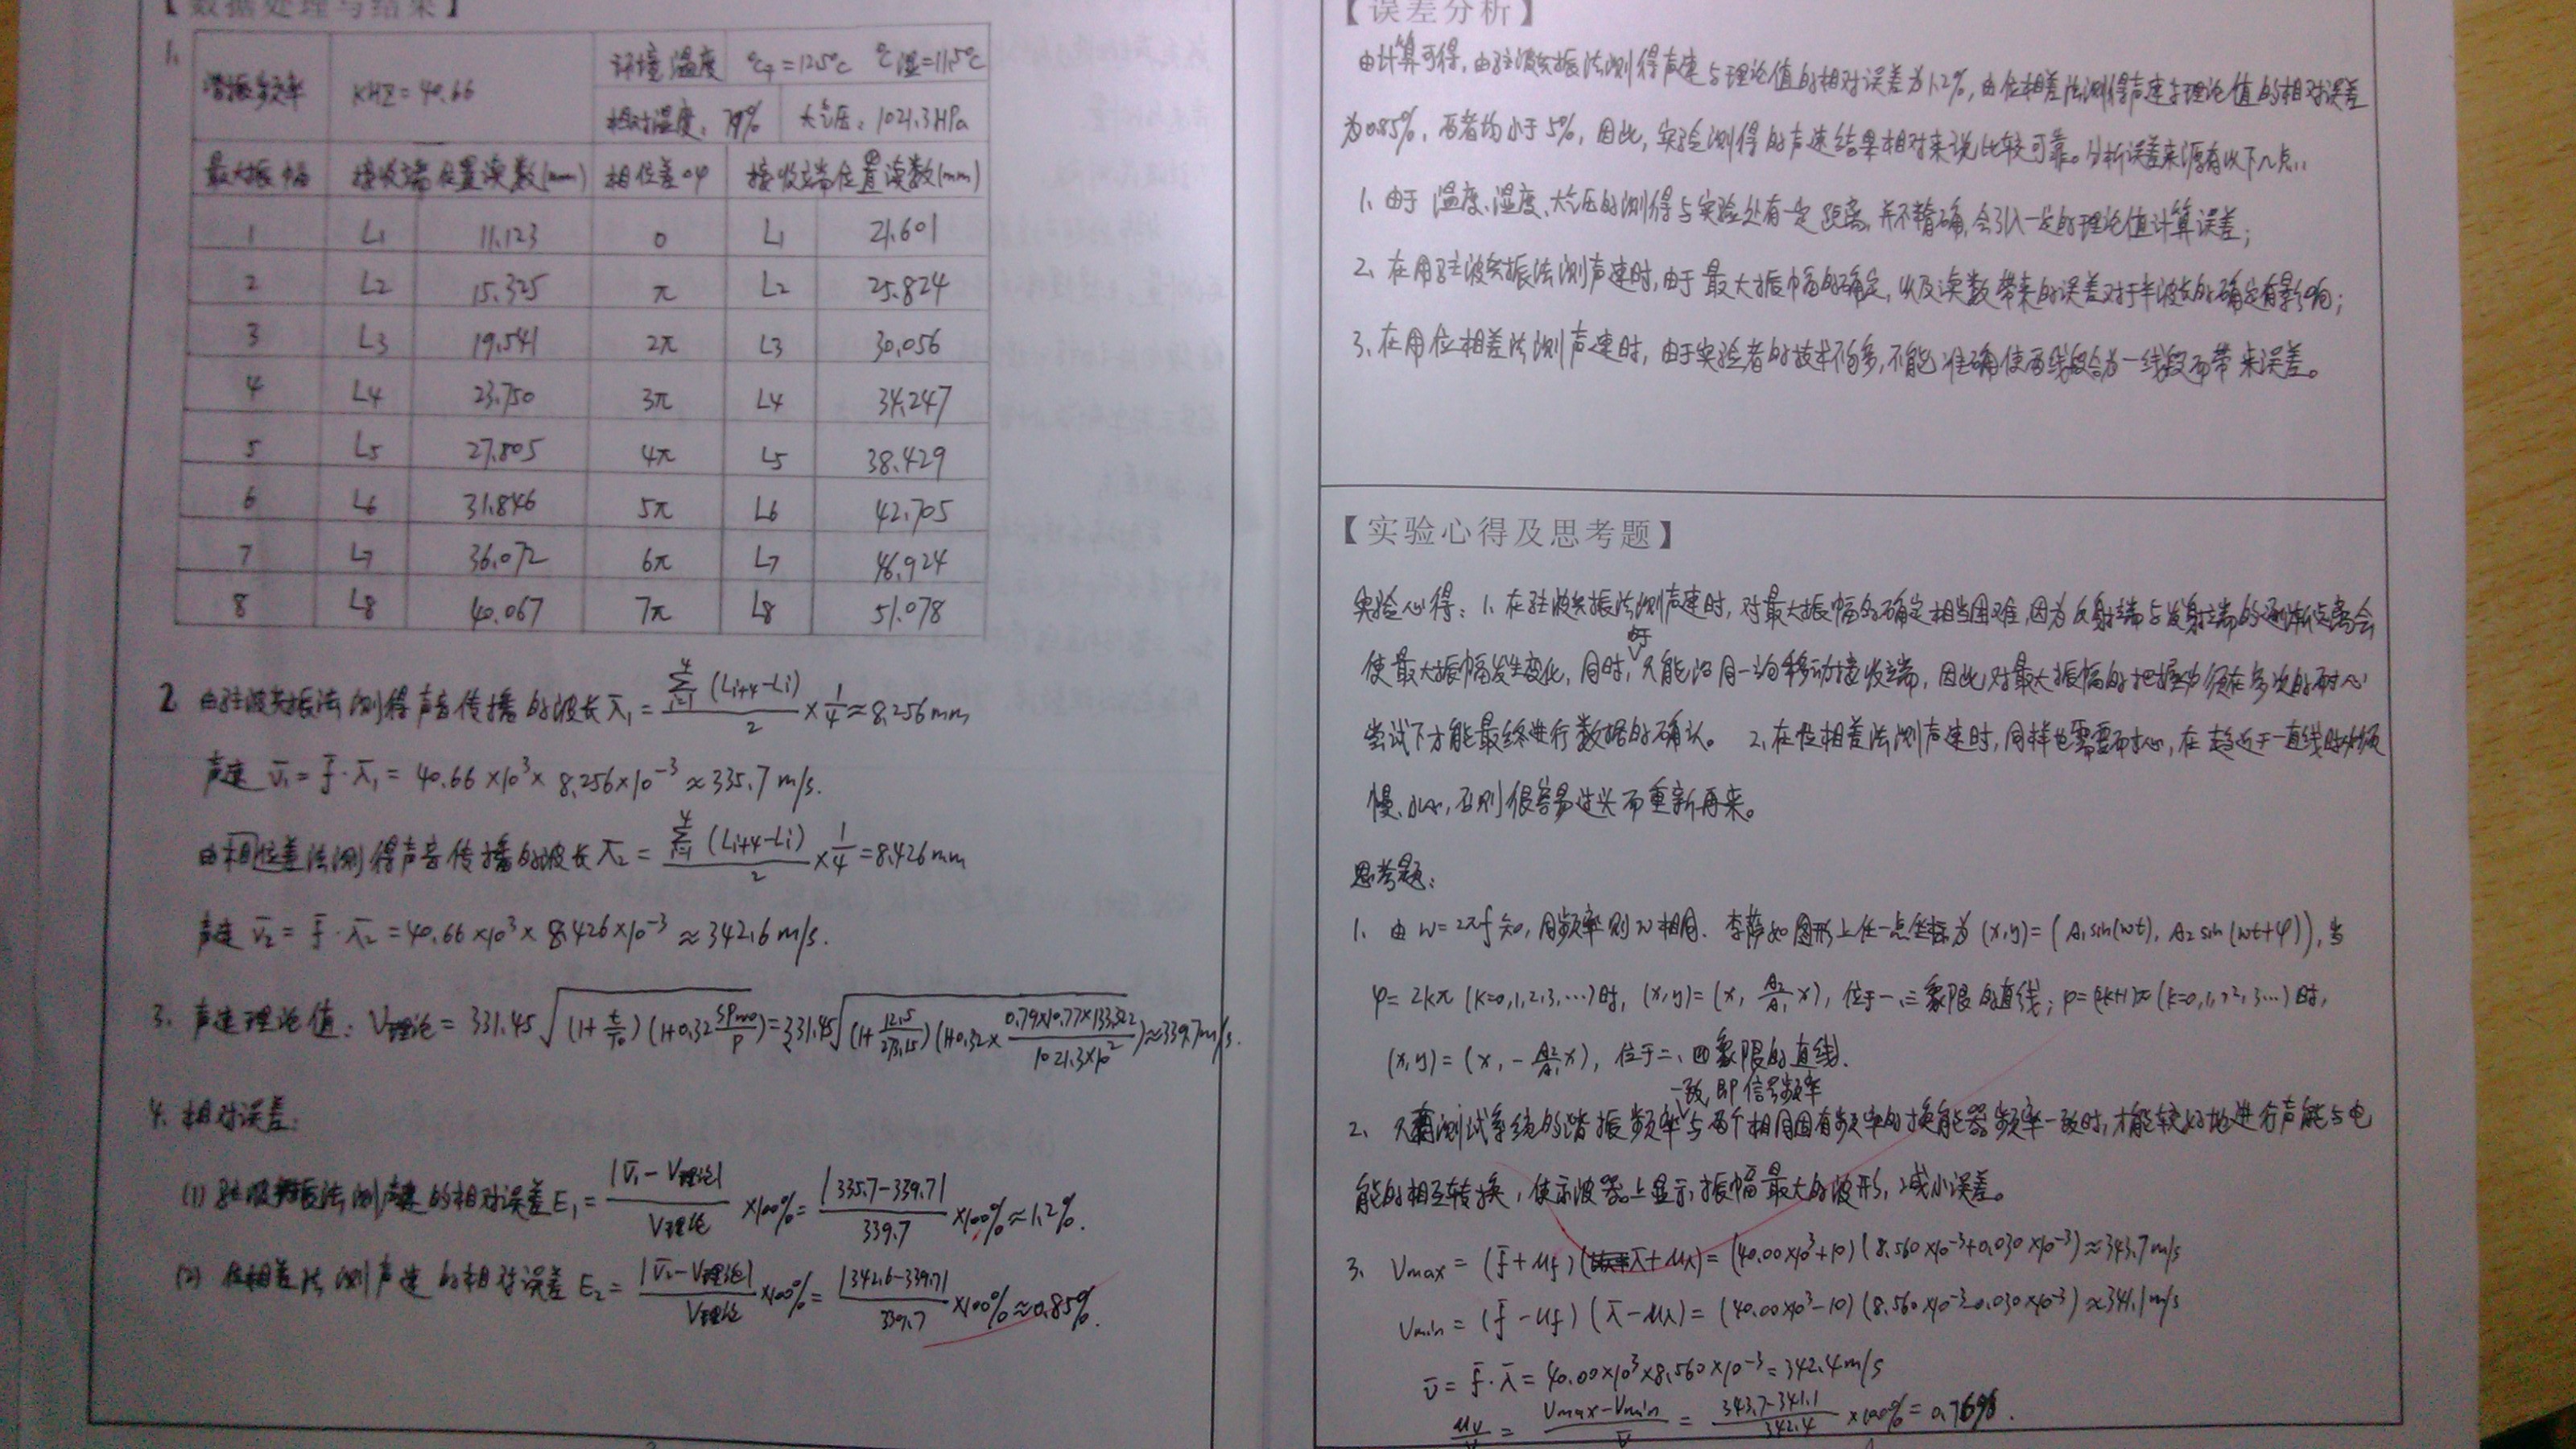 【数据处理与结果】
1.
谐振频率 KHZ=40.66 环境温度 ℃干=12.5℃ ℃湿=11.5℃
相对湿度：79% 大气压：1021.3HPa
最大振幅 接收端位置读数(mm) 相位差φ 接收端位置读数(mm)
1 L1 11.123 0 L1 21.601
2 L2 15.325 π L2 25.824
3 L3 19.541 2π L3 30.056
4 L4 23.750 3π L4 34.247
5 L5 27.805 4π L5 38.429
6 L6 31.846 5π L6 42.705
7 L7 36.072 6π L7 46.924
8 L8 40.067 7π L8 51.078
2. 由驻波共振法测得声音传播的波长λ̄₁=Σ(i=1→4)(Li+4-Li)/2×1/4≈8.256mm
声速 v̄₁=f̄·λ̄₁=40.66×10³×8.256×10⁻³≈335.7m/s.
由相位差法测得声音传播的波长λ̄₂=Σ(i=1→4)(Li+4-Li)/2×1/4=8.426mm
声速 v̄₂=f̄·λ̄₂=40.66×10³×8.426×10⁻³≈342.6m/s.
3. 声速理论值：V理论=331.45√(1+t/T₀)(1+0.32 SPwo/P)=331.45√(1+12.5/273.15)(1+0.32×0.79×10.77×133.322/1021.3×10²)≈339.7m/s.
4. 相对误差：
(1) 驻波共振法测声速的相对误差E₁=|v̄₁-V理论|/V理论×100%=|335.7-339.7|/339.7×100%≈1.2%.
(2) 位相差法测声速的相对误差E₂=|v̄₂-V理论|/V理论×100%=|342.6-339.7|/339.7×100%≈0.85%.
【误差分析】
由计算可得，由驻波共振法测得声速与理论值的相对误差为1.2%，由位相差法测得声速与理论值的相对误差
为0.85%，两者均小于5%，因此，实验测得的声速结果相对来说比较可靠。分析误差来源有以下几点：
1、由于温度、湿度、大气压的测得与实验处有一定距离，并不精确，会引入一定的理论值计算误差；
2、在用驻波共振法测声速时，由于最大振幅的确定，以及读数带来的误差对于半波长的确定有影响；
3、在用位相差法测声速时，由于实验者的技术不多，不能准确使两线段合为一线段而带来误差。
【实验心得及思考题】
实验心得：1、在驻波共振法测声速时，对最大振幅的确定相当困难，因为反射端与发射端的逐渐远离会
使最大振幅发生变化，同时，由于只能沿同一方向移动接收端，因此对最大振幅的把握必须在多次的耐心
尝试下才能最终进行数据的确认。 2、在位相差法测声速时，同样也需要耐心，在趋近于一直线时必须
慢、小心，否则很容易过头而重新再来。
思考题：
1、由w=2πf知，同频率则w相同．李萨如图形上任一点坐标为(x,y)=(A₁sin(wt), A₂sin(wt+φ))，当
φ=2kπ (k=0,1,2,3,…)时，(x,y)=(x, A₂/A₁ x)，位于一、三象限的直线；φ=(2k+1)π (k=0,1,2,3…)时，
(x,y)=(x, -A₂/A₁ x)，位于二、四象限的直线.
2、只有测试系统的谐振频率一致，即信号频率与两个相同固有频率的换能器频率一致时，才能较好地进行声能与电
能的相互转换，使示波器上显示振幅最大的波形，减小误差。
3、Vmax=(f̄+μf)(λ̄+μλ)=(40.00×10³+10)(8.560×10⁻³+0.030×10⁻³)≈343.7m/s
Vmin=(f̄-μf)(λ̄-μλ)=(40.00×10³-10)(8.560×10⁻³-0.030×10⁻³)≈341.1m/s
v̄=f̄·λ̄=40.00×10³×8.560×10⁻³=342.4m/s
μv/v̄=(Vmax-Vmin)/v̄=(343.7-341.1)/342.4×100%=0.76%.